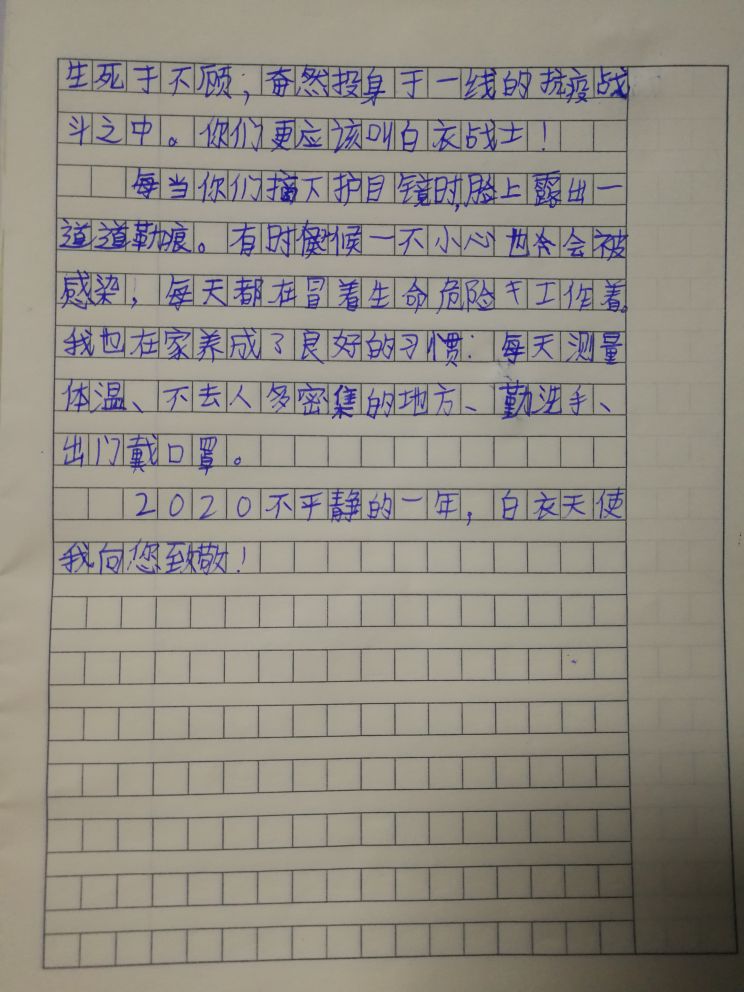 生死于不顾；奋然投身于一线的抗疫战
斗之中。你们更应该叫白衣战士！
每当你们摘下护目镜时,脸上露出一
道道勒痕。有时候一不小心也会被
感染，每天都在冒着生命危险工作着。
我也在家养成了良好的习惯：每天测量
体温、不去人多密集的地方、勤洗手、
出门戴口罩。
2020不平静的一年，白衣天使
我向您致敬！